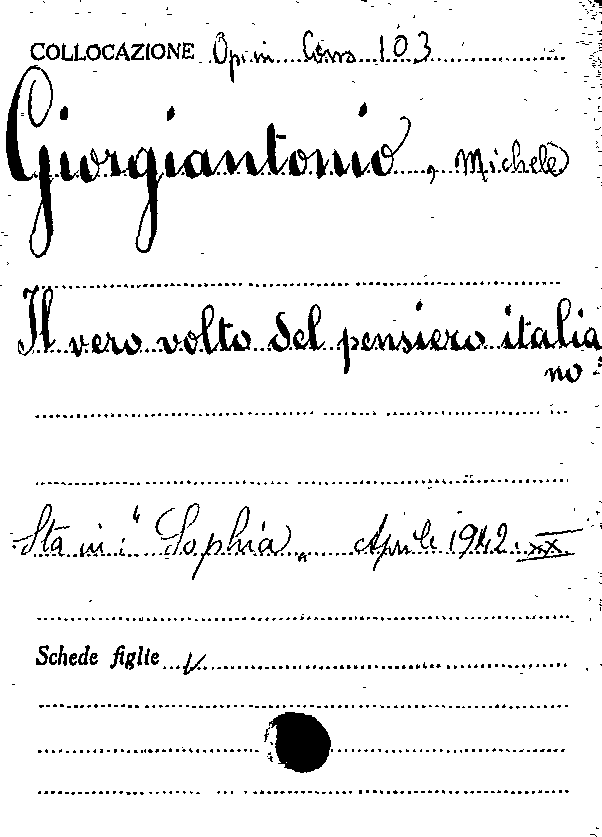 COLLOCAZIONE Op. in Cons 103
Giorgiantonio, Michele
Il vero volto del pensiero italia
no
Sta in: "Sophia„ Aprile 1942. XX.
Schede figlie V